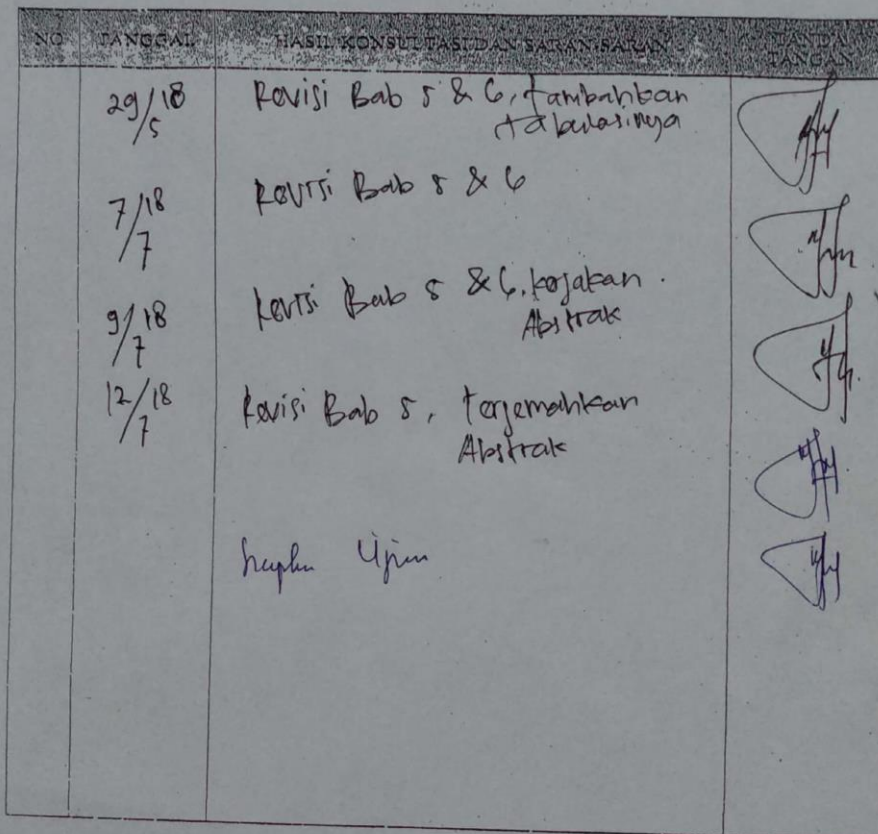 NO TANGGAL HASIL KONSULTASI DAN SARAN-SARAN TANDA
TANGAN
29/18
5 Revisi Bab 5 & 6, tambahkan
tabulasinya
7/18
7 Revisi Bab 5 & 6
9/18
7 Revisi Bab 5 & 6, kerjakan
Abstrak
12/18
7 Revisi Bab 5, terjemahkan
Abstrak
Ujian